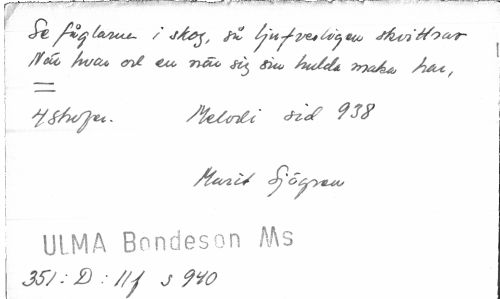 Se fåglarne i skog, så ljufveligen skvittrar
När hvar och en när sig sin hulda maka har,
4 strofer. Melodi sid 938
Marit Sjögren
ULMA Bondeson Ms
351 : D : 11f s 940